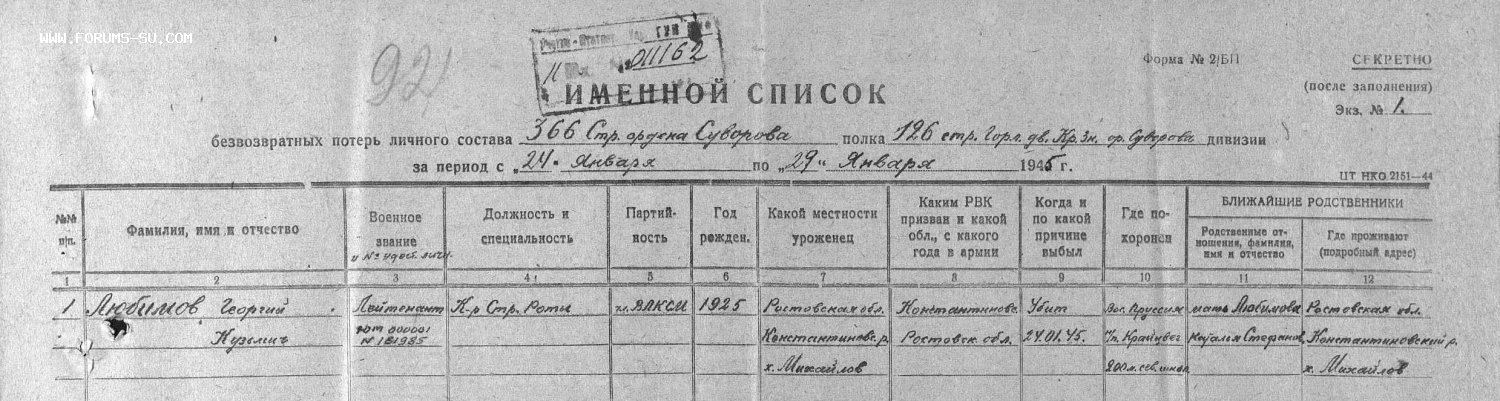 WWW.FORUMS-SU.COM
92
011162
Форма № 2/БП
СЕКРЕТНО
(после заполнения)
Экз. № 1.
ИМЕННОЙ СПИСОК
безвозвратных потерь личного состава 366 Стр. ордена Суворова полка 126 стр. Горл. дв. Кр. Зн. ор. Суворова дивизии
за период с „24" Января по „29" Января 1945 г.
ЦТ НКО 2151—44
№№ п/п.
Фамилия, имя и отчество
Военное звание и № удост. личн.
Должность и специальность
Партийность
Год рожден.
Какой местности уроженец
Каким РВК призван и какой обл., с какого года в армии
Когда и по какой причине выбыл
Где похоронен
БЛИЖАЙШИЕ РОДСТВЕННИКИ
Родственные отношения, фамилия, имя и отчество
Где проживают (подробный адрес)
1 2 3 4 5 6 7 8 9 10 11 12
1 Любимов Георгий Лейтенант К-р Стр. Роты чл. ВЛКСМ 1925 Ростовская обл. Константиновс. Убит Вос. Пруссия мать Любимова Ростовская обл.
Кузьмич № 181985 Константиновс. р. Ростовск. обл. 24.01.45. Наталья Стефанов. Константиновский р.
х. Михайлов 200 м. сев. х. Михайлов